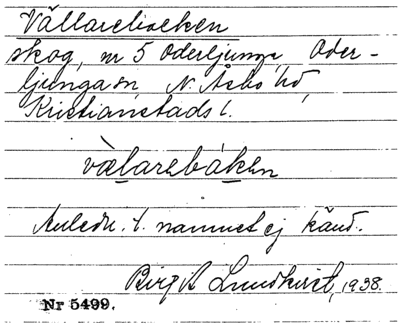 Vällarebacken
skog, nr 5 Oderljunga, Oder-
ljunga sn N. Åsbo hd,
Kristianstads l.
välarebáken
Anledn. t. namnet ej känd.
Birgit Lundkvist, 1938.
Nr 5499.